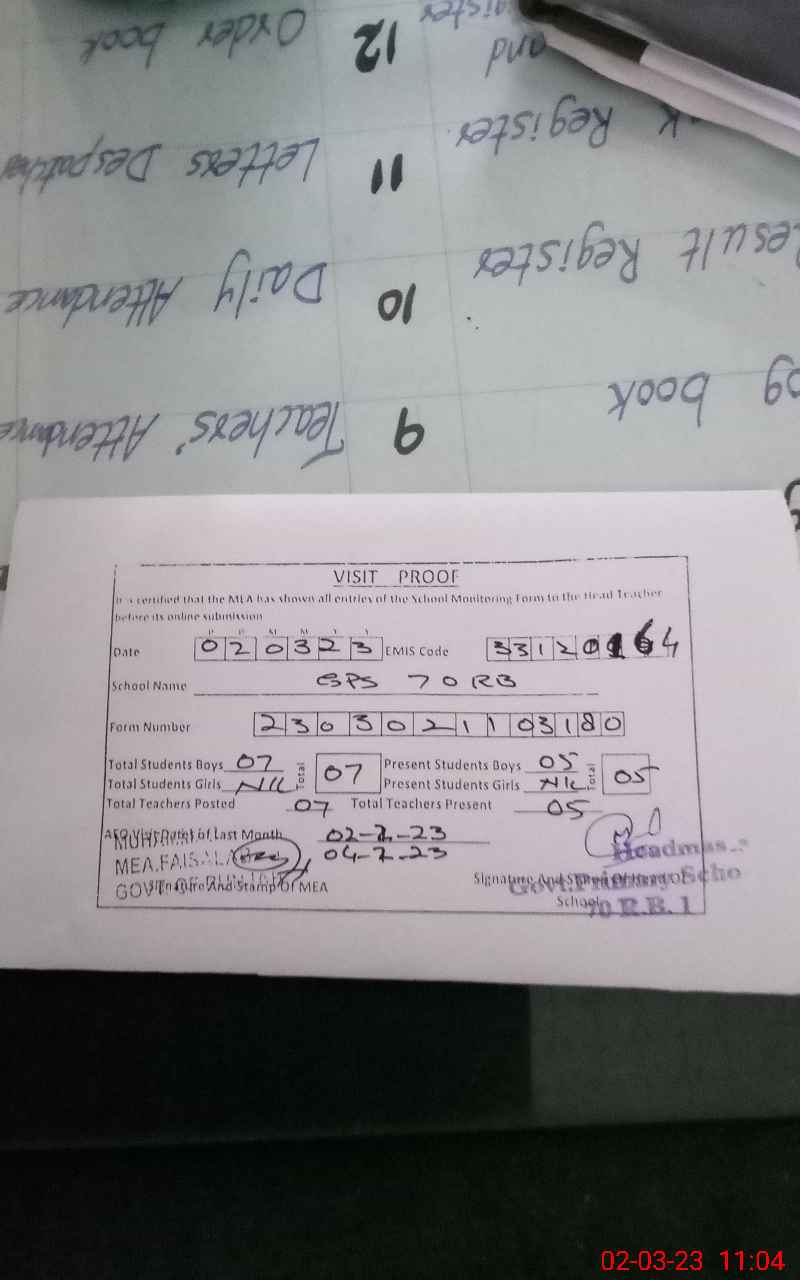 Order book 12 and
Letters Despatche 11 Register
Daily Attendance 10 Result Register
Teachers' Attendance 9 book
VISIT PROOF
It is certified that the MEA has shown all entries of the School Monitoring Form to the Head Teacher
before its online submission
D D M M Y Y
Date 020323 EMIS Code 33120164
School Name GPS 70 RB
Form Number 2303021103180
Total Students Boys 07 Total 07 Present Students Boys 05 Total 05
Total Students Girls Nil Present Students Girls Nil
Total Teachers Posted 07 Total Teachers Present 05
AEO Visit Date of Last Month 02-2-23
04-2-23
MEA.FAISALA
GOVT OF
Signature And Stamp Of MEA
Signature And Stamp Of
School
Headmas
Govt. Primary Scho
70 R.B. 1
02-03-23 11:04